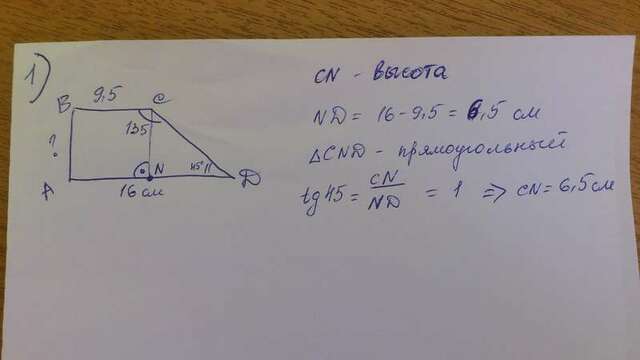 1)
B 9,5 C
135
?
45°
N
A 16 см D
CN - высота
ND = 16 - 9,5 = 6,5 см
△CND - прямоугольный
tg45 = CN/ND = 1 => CN = 6,5 см